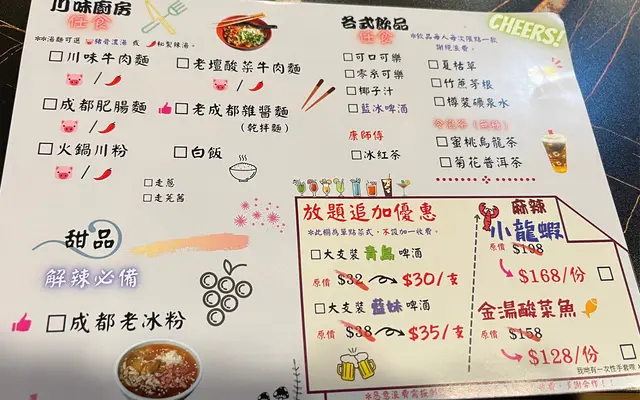 川味廚房
任食
**湯麵可選 豬骨濃湯 或 秘製辣湯。
川味牛肉麵
老壇酸菜牛肉麵
/
成都肥腸麵
老成都雜醬麵
(乾拌麵)
/
火鍋川粉
白飯
/
走蔥
走芫茜
甜品
解辣必備
成都老冰粉
各式飲品
任食
CHEERS!
*飲品每人每次限點一款
謝絕浪費。
可口可樂
零系可樂
椰子汁
藍冰啤酒
康師傅
冰紅茶
夏枯草
竹蔗茅根
樽裝礦泉水
蜜桃烏龍茶
菊花普洱茶
放題追加優惠
*此欄為單點菜式，不設加一收費。
大支裝 青島 啤酒
原價 $32 $30/支
大支裝 藍妹 啤酒
原價 $38 $35/支
麻辣
小龍蝦
原價 $198
$168/份
金湯酸菜魚
原價 $158
$128/份